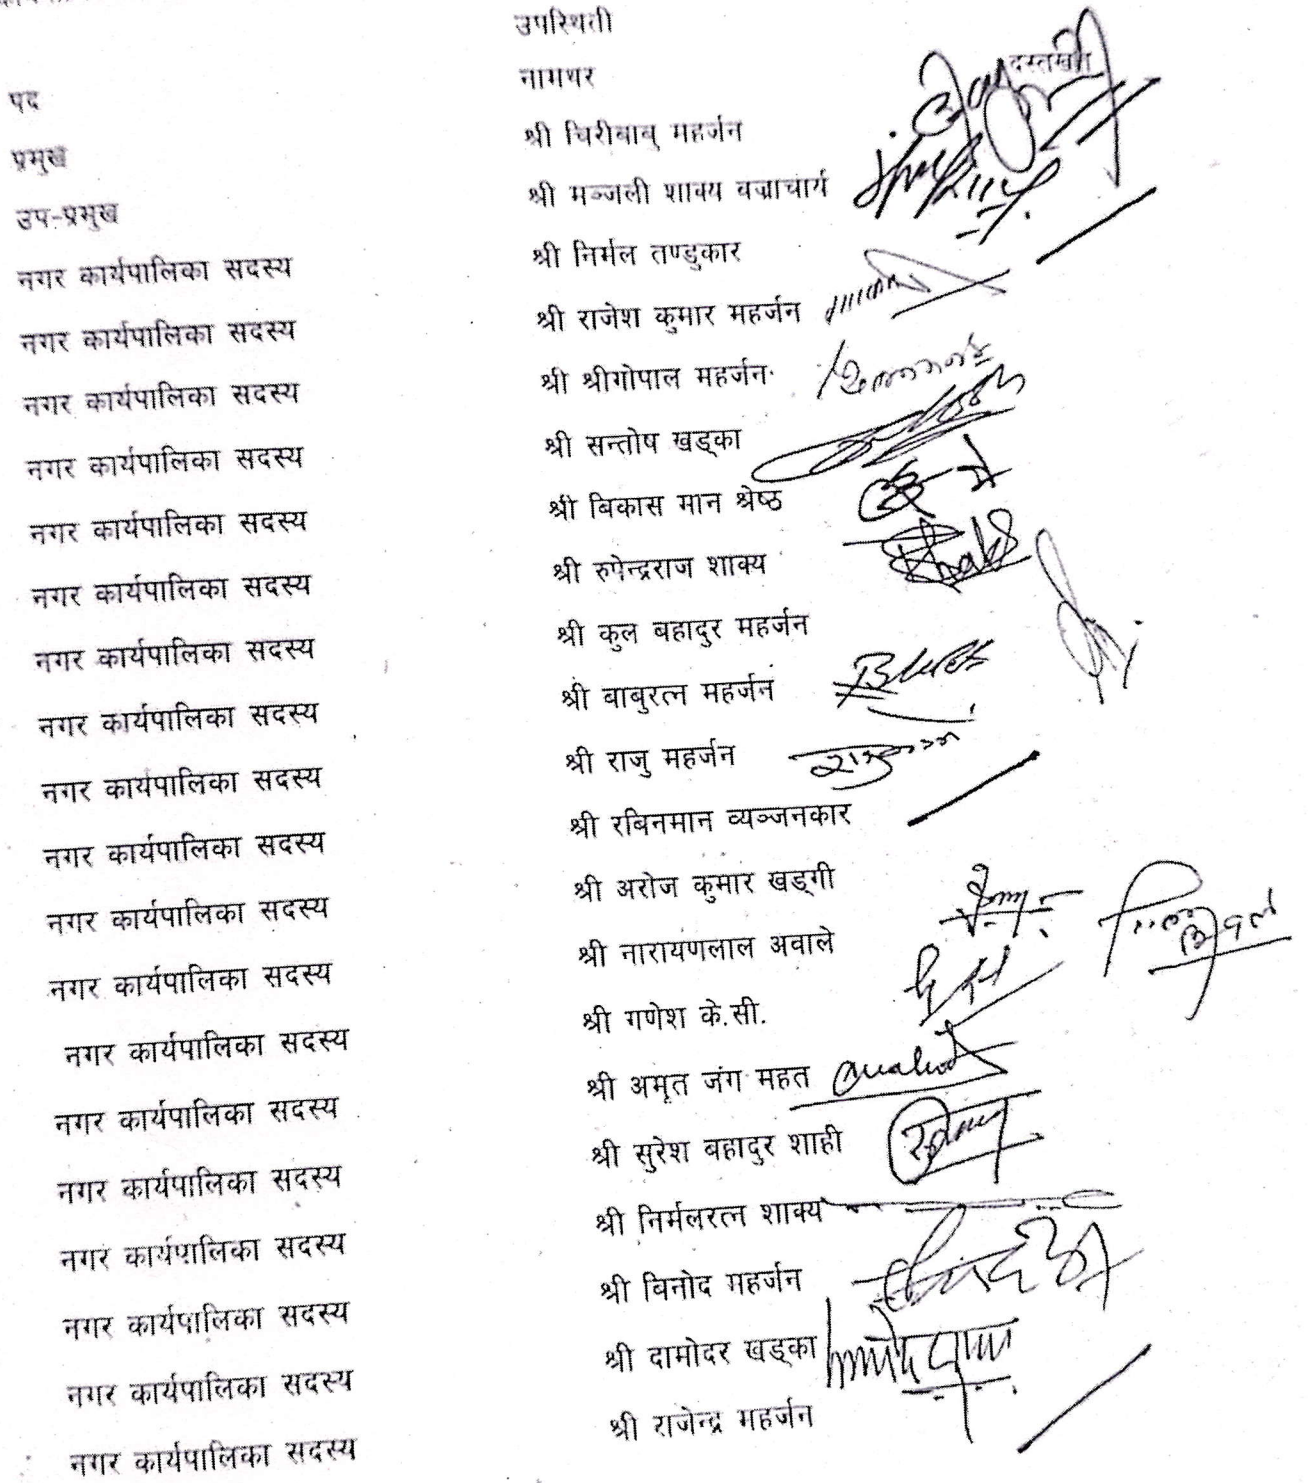 उपस्थिती
पद नामथर दस्तखत
प्रमुख श्री चिरीबाबु महर्जन
उप-प्रमुख श्री मञ्जली शाक्य बज्राचार्य
नगर कार्यपालिका सदस्य श्री निर्मल तण्डुकार
नगर कार्यपालिका सदस्य श्री राजेश कुमार महर्जन
नगर कार्यपालिका सदस्य श्री श्रीगोपाल महर्जन
नगर कार्यपालिका सदस्य श्री सन्तोष खड्का
नगर कार्यपालिका सदस्य श्री बिकास मान श्रेष्ठ
नगर कार्यपालिका सदस्य श्री रुपेन्द्रराज शाक्य
नगर कार्यपालिका सदस्य श्री कुल बहादुर महर्जन
नगर कार्यपालिका सदस्य श्री बाबुरत्न महर्जन
नगर कार्यपालिका सदस्य श्री राजु महर्जन
नगर कार्यपालिका सदस्य श्री रबिनमान व्यञ्जनकार
नगर कार्यपालिका सदस्य श्री अरोज कुमार खड्गी
नगर कार्यपालिका सदस्य श्री नारायणलाल अवाले
नगर कार्यपालिका सदस्य श्री गणेश के.सी.
नगर कार्यपालिका सदस्य श्री अमृत जंग महत
नगर कार्यपालिका सदस्य श्री सुरेश बहादुर शाही
नगर कार्यपालिका सदस्य श्री निर्मलरत्न शाक्य
नगर कार्यपालिका सदस्य श्री विनोद महर्जन
नगर कार्यपालिका सदस्य श्री दामोदर खड्का
नगर कार्यपालिका सदस्य श्री राजेन्द्र महर्जन